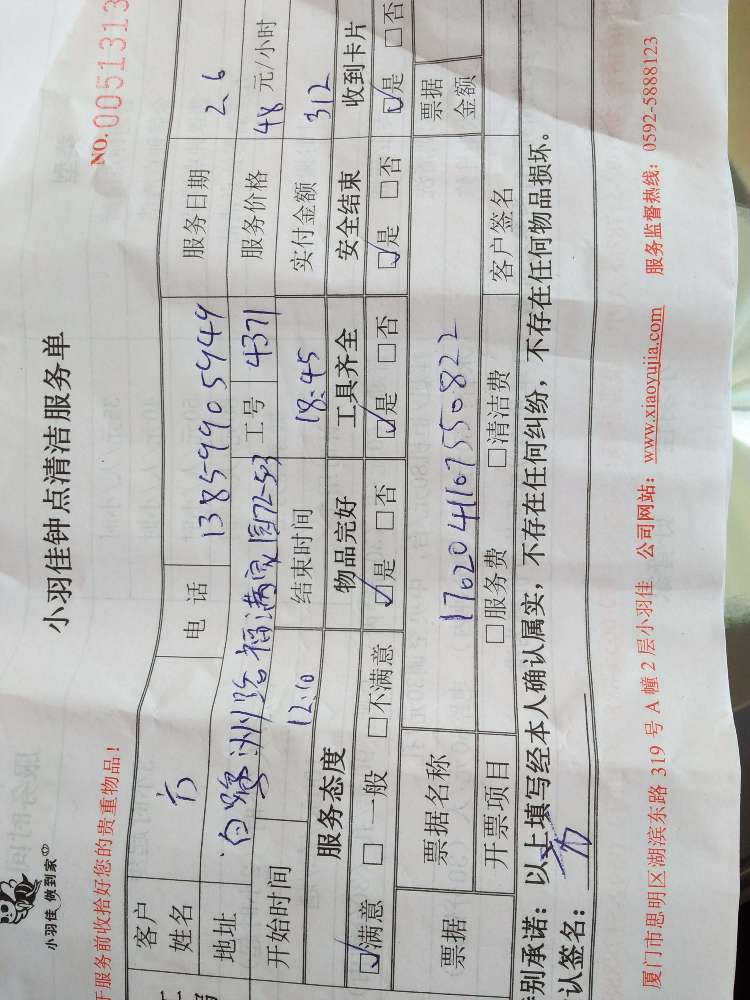 小羽佳 做到家
小羽佳钟点清洁服务单
NO.0051313
服务前收拾好您的贵重物品！
客户姓名 方 电 话 13859905949 服务日期 2.6
地址 白鹭洲路福满家园72-503 工号 4371 服务价格 48 元/小时
开始时间 12:10 结束时间 18:45 实付金额 312
服务态度 物品完好 工具齐全 安全结束 收到卡片
☑满意 □一般 □不满意 ☑是 □否 ☑是 □否 ☑是 □否 ☑是 □否
票据 票据名称 1702041107550822 票据金额
开票项目 □服务费 □清洁费 客户签名
别承诺：以上填写经本人确认属实，不存在任何纠纷，不存在任何物品损坏。
认签名： 方
厦门市思明区湖滨东路 319 号 A 幢 2 层小羽佳 公司网站：www.xiaoyujia.com 服务监督热线：0592-5888123